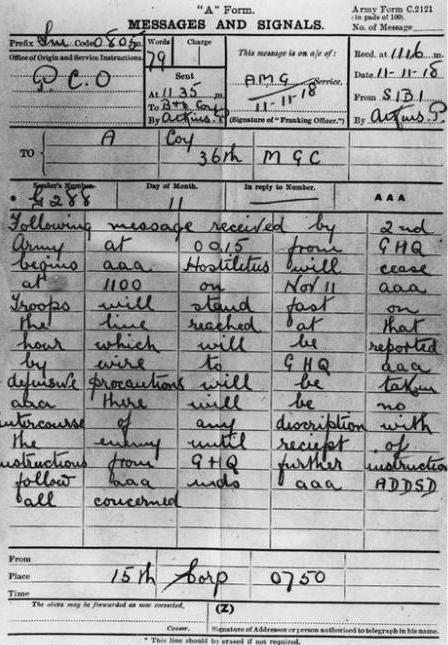 "A" Form.
Army Form C.2121
(in pads of 100).
MESSAGES AND SIGNALS.
No. of Message
Prefix Sm Code 0805 m.
Words
Charge
This message is on a/c of:
Recd. at 1116 m.
Office of Origin and Service Instructions.
79
Sent
AMG Service.
Date 11-11-18
P.C.O
At 1135 m.
11-11-18
From SIB1
To B+D Coy
By Atkins. P.
(Signature of "Franking Officer.")
By Atkins. P.
TO
A Coy
36th M G C
Sender's Number.
Day of Month.
In reply to Number.
AAA
* G288
11
Following message received by 2nd
Army at 0015 from GHQ
begins aaa Hostiletus will cease
at 1100 on Nov 11 aaa
Troops will stand fast on
the line reached at that
hour which will be reported
by wire to GHQ aaa
defensive precautions will be taken
aaa there will be no
intercourse of any discription with
the enemy until reciept of
instructions from GHQ further instruction
follow aaa ends aaa ADDSD
all concerned
From
Place
15th Corp 0750
Time
The above may be forwarded as now corrected.
(Z)
Censor.
Signature of Addressor or person authorised to telegraph in his name.
* This line should be erased if not required.